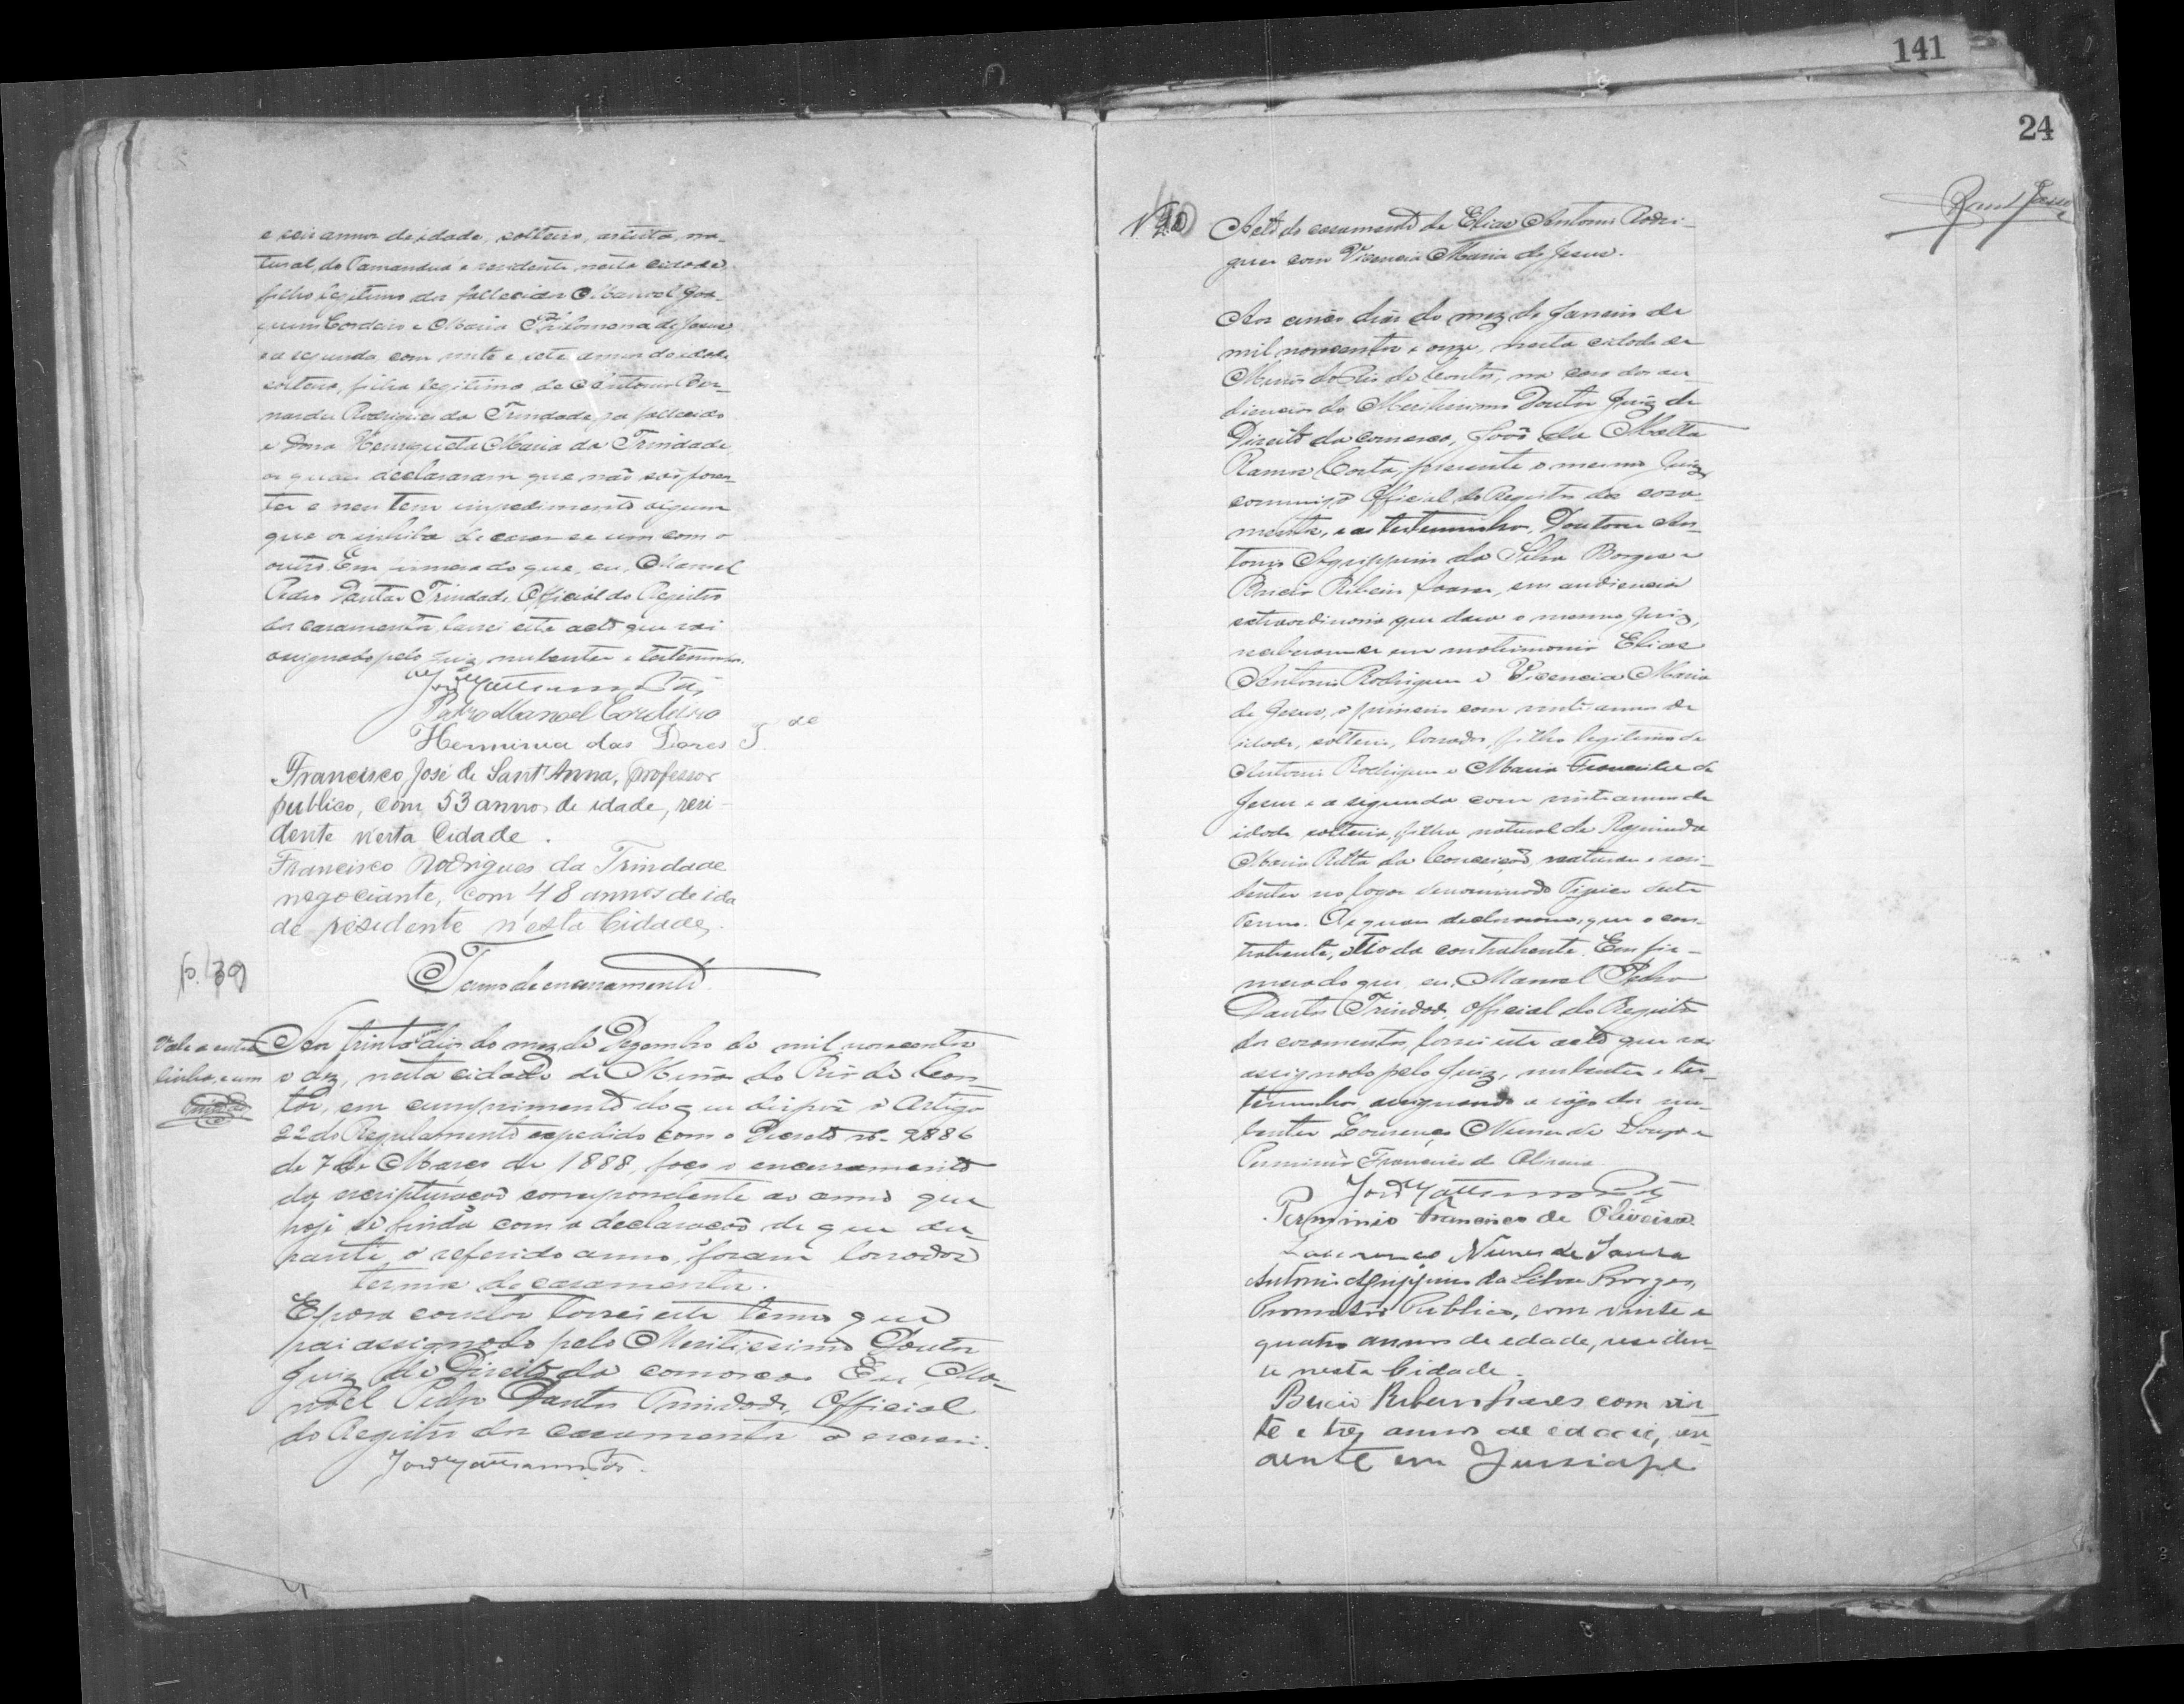 e seis annos de idade, solteiro, artista, na-
tural do Tamanduá e residente nesta cidade,
filho legitimo dos fallecidos Manoel Joa-
quim Cordeiro e Maria Philomena de Jesus
e a segunda, com vinte e sete annos de idade
solteira, filha legitima de Antonio Ber-
nardes Rodrigues da Trindade, ja fallecido
e Dona Henriqueta Maria da Trindade
os quaes declararam que não são paren-
tes e nem tem impedimento algum
que os inhiba de casar-se um com o
outro. Em firmesa do que, eu, Manoel
Pedro Dantas Trindade Official do Registro
dos casamentos, lancei este acto que vai
assignado pelo Juiz, nubentes e testemunhas.
Pedro Manoel Cordeiro
Herminia das Dores T.de
Francisco José de Sant'Anna, professor
publico, com 53 annos de idade, resi-
dente nesta Cidade.
Francisco Rodrigues da Trindade
negociante, com 48 annos de ida
de residente n'esta Cidade.
p. 139
Termo de encerramento
Vale a entre
linha, e um
Aos trinta e um dias do mez de Dezembro de mil novecentos
e dez, nesta cidade de Minas do Rio de Con-
tas, em cumprimento do que dispõe o Artigo
22 do Regulamento expedido com o Decreto nº 9886
de 7 de Março de 1888, faço o encerramento
da escripturação correspondente ao anno que
hoje se finda com a declaração de que du-
rante o referido anno, foram lavrados
termos de casamentos.
E para constar lavrei este termo que
vai assignado pelo Meritissimo Doutor
Juiz de Direito da comarca. Eu, Ma-
noel Pedro Dantas Trindade, Official
do Registro dos casamentos o escrevi.
141
24
Nº
Acto do casamento de Elias Antonio Rodri-
gues com Vicencia Maria de Jesus.
Aos cinco dias do mez de Janeiro de
mil novecentos e onze, nesta cidade de
Minas do Rio de Contas, na casa das au-
diencias do Meritissimo Doutor Juiz de
Direito da comarca, João da Matta
Ramos Costa, presente o mesmo Juiz
commigo Official do Registro dos casa-
mentos, e as testemunhas, Doutor An-
tonio Agrippino da Silva Borges e
Bricio Ribeiro Soares, em audiencia
extraordinaria que dava o mesmo Juiz,
receberam-se em matrimonio Elias
Antonio Rodrigues e Vicencia Maria
de Jesus, o primeiro com vinte annos de
idade, solteiro, lavrador, filho legitimo de
Antonio Rodrigues e Maria de
Jesus e a segunda com vinte annos de
idade solteira, filha natural de
Maria Ritta da Conceição, naturaes e resi-
dentes no logar denominado deste
Termo. Os quaes declararam, que o con-
trahente, é tio da contrahente. Em fir-
mesa do que, eu, Manoel Pedro
Dantas Trindade, Official do Registro
dos casamentos, lavrei este acto que vai
assignado pelo Juiz, nubentes e tes-
temunhas assignando a rogo dos nu-
bentes Lourenço Nunes de Souza e
Perminio Francisco de Oliveira
Perminio Francisco de Oliveira
Lourenço Nunes de Souza
Antonio Agrippino da Silva Borges,
Promotor Publico, com vinte e
quatro annos de edade, residen-
te nesta Cidade.
Bricio Ribeiro Soares com vin-
te e trez annos de edade, resi-
dente em Jussiape